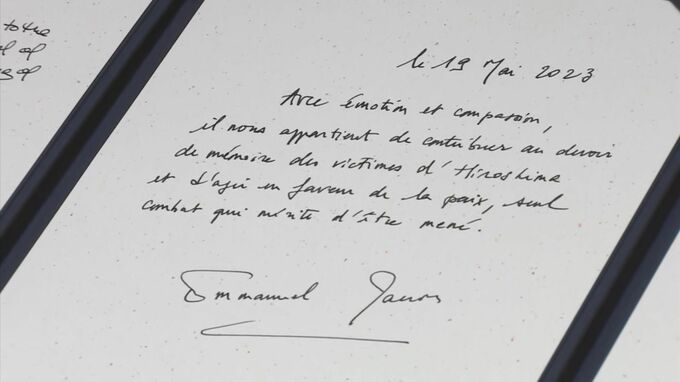 totre
le 19 Mai 2023
Avec émotion et compassion,
il nous appartient de contribuer au devoir
de mémoire des victimes d'Hiroshima
et d'agir en faveur de la paix, seul
combat qui mérite d'être mené.
Emmanuel Macron